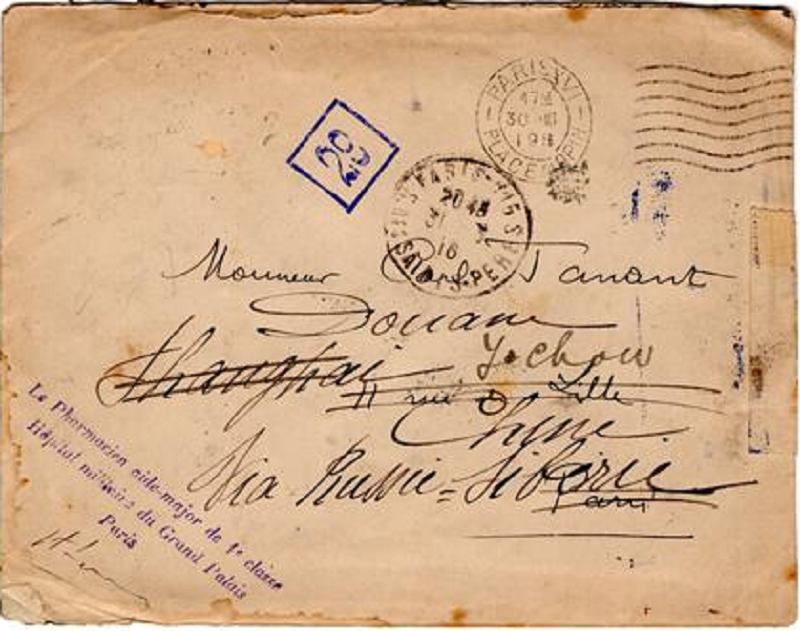 PARIS XVI
17
30 III
PLACE CHOPIN
29
PARIS
20 45
16
SAINTS-PERES
Monsieur Tanant
Douane
Shanghai Yochow
11 rue de Lille
Chine
Via Russie = Sibérie
Paris
Le Pharmacien aide-major de 1e classe
Hôpital militaire du Grand Palais
Paris